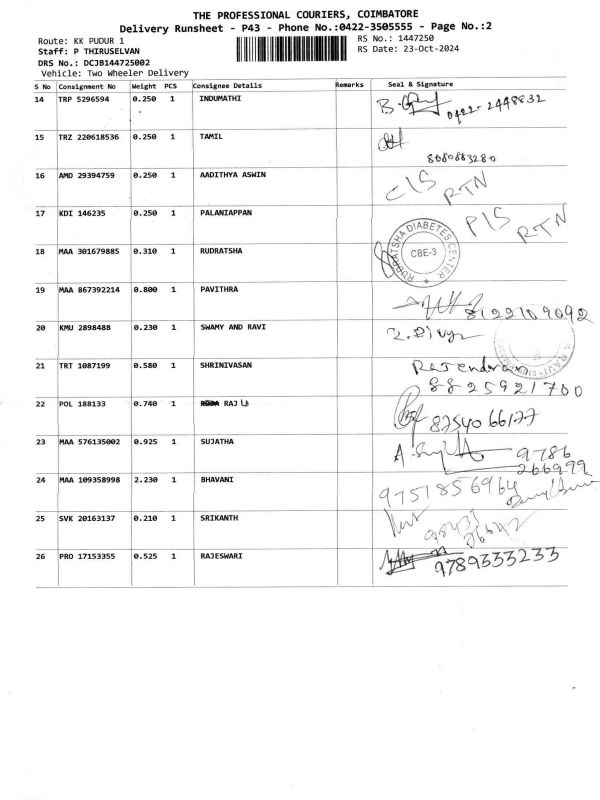 THE PROFESSIONAL COURIERS, COIMBATORE
Delivery Runsheet - P43 - Phone No.:0422-3505555 - Page No.:2
Route: KK PUDUR 1 RS No.: 1447250
Staff: P THIRUSELVAN RS Date: 23-Oct-2024
DRS No.: DCJB144725002
Vehicle: Two Wheeler Delivery
S No Consignment No Weight PCS Consignee Details Remarks Seal & Signature
14 TRP 5296594 0.250 1 INDUMATHI 0422-2448832
15 TRZ 220618536 0.250 1 TAMIL
16 AMD 29394759 0.250 1 AADITHYA ASWIN C/S RTN
17 KDI 146235 0.250 1 PALANIAPPAN P/S RTN
18 MAA 301679885 0.310 1 RUDRATSHA RUDRATSHA DIABETES CENTER CBE-3
19 MAA 867392214 0.800 1 PAVITHRA 8122109092
20 KMU 2898488 0.230 1 SWAMY AND RAVI
21 TRT 1087199 0.580 1 SHRINIVASAN Rajendran 8825921700
22 POL 188133 0.740 1 RAJ 8754066177
23 MAA 576135002 0.925 1 SUJATHA 9786 266999
24 MAA 109358998 2.230 1 BHAVANI 9751856964
25 SVK 20163137 0.210 1 SRIKANTH
26 PRO 17153355 0.525 1 RAJESWARI 9789333233